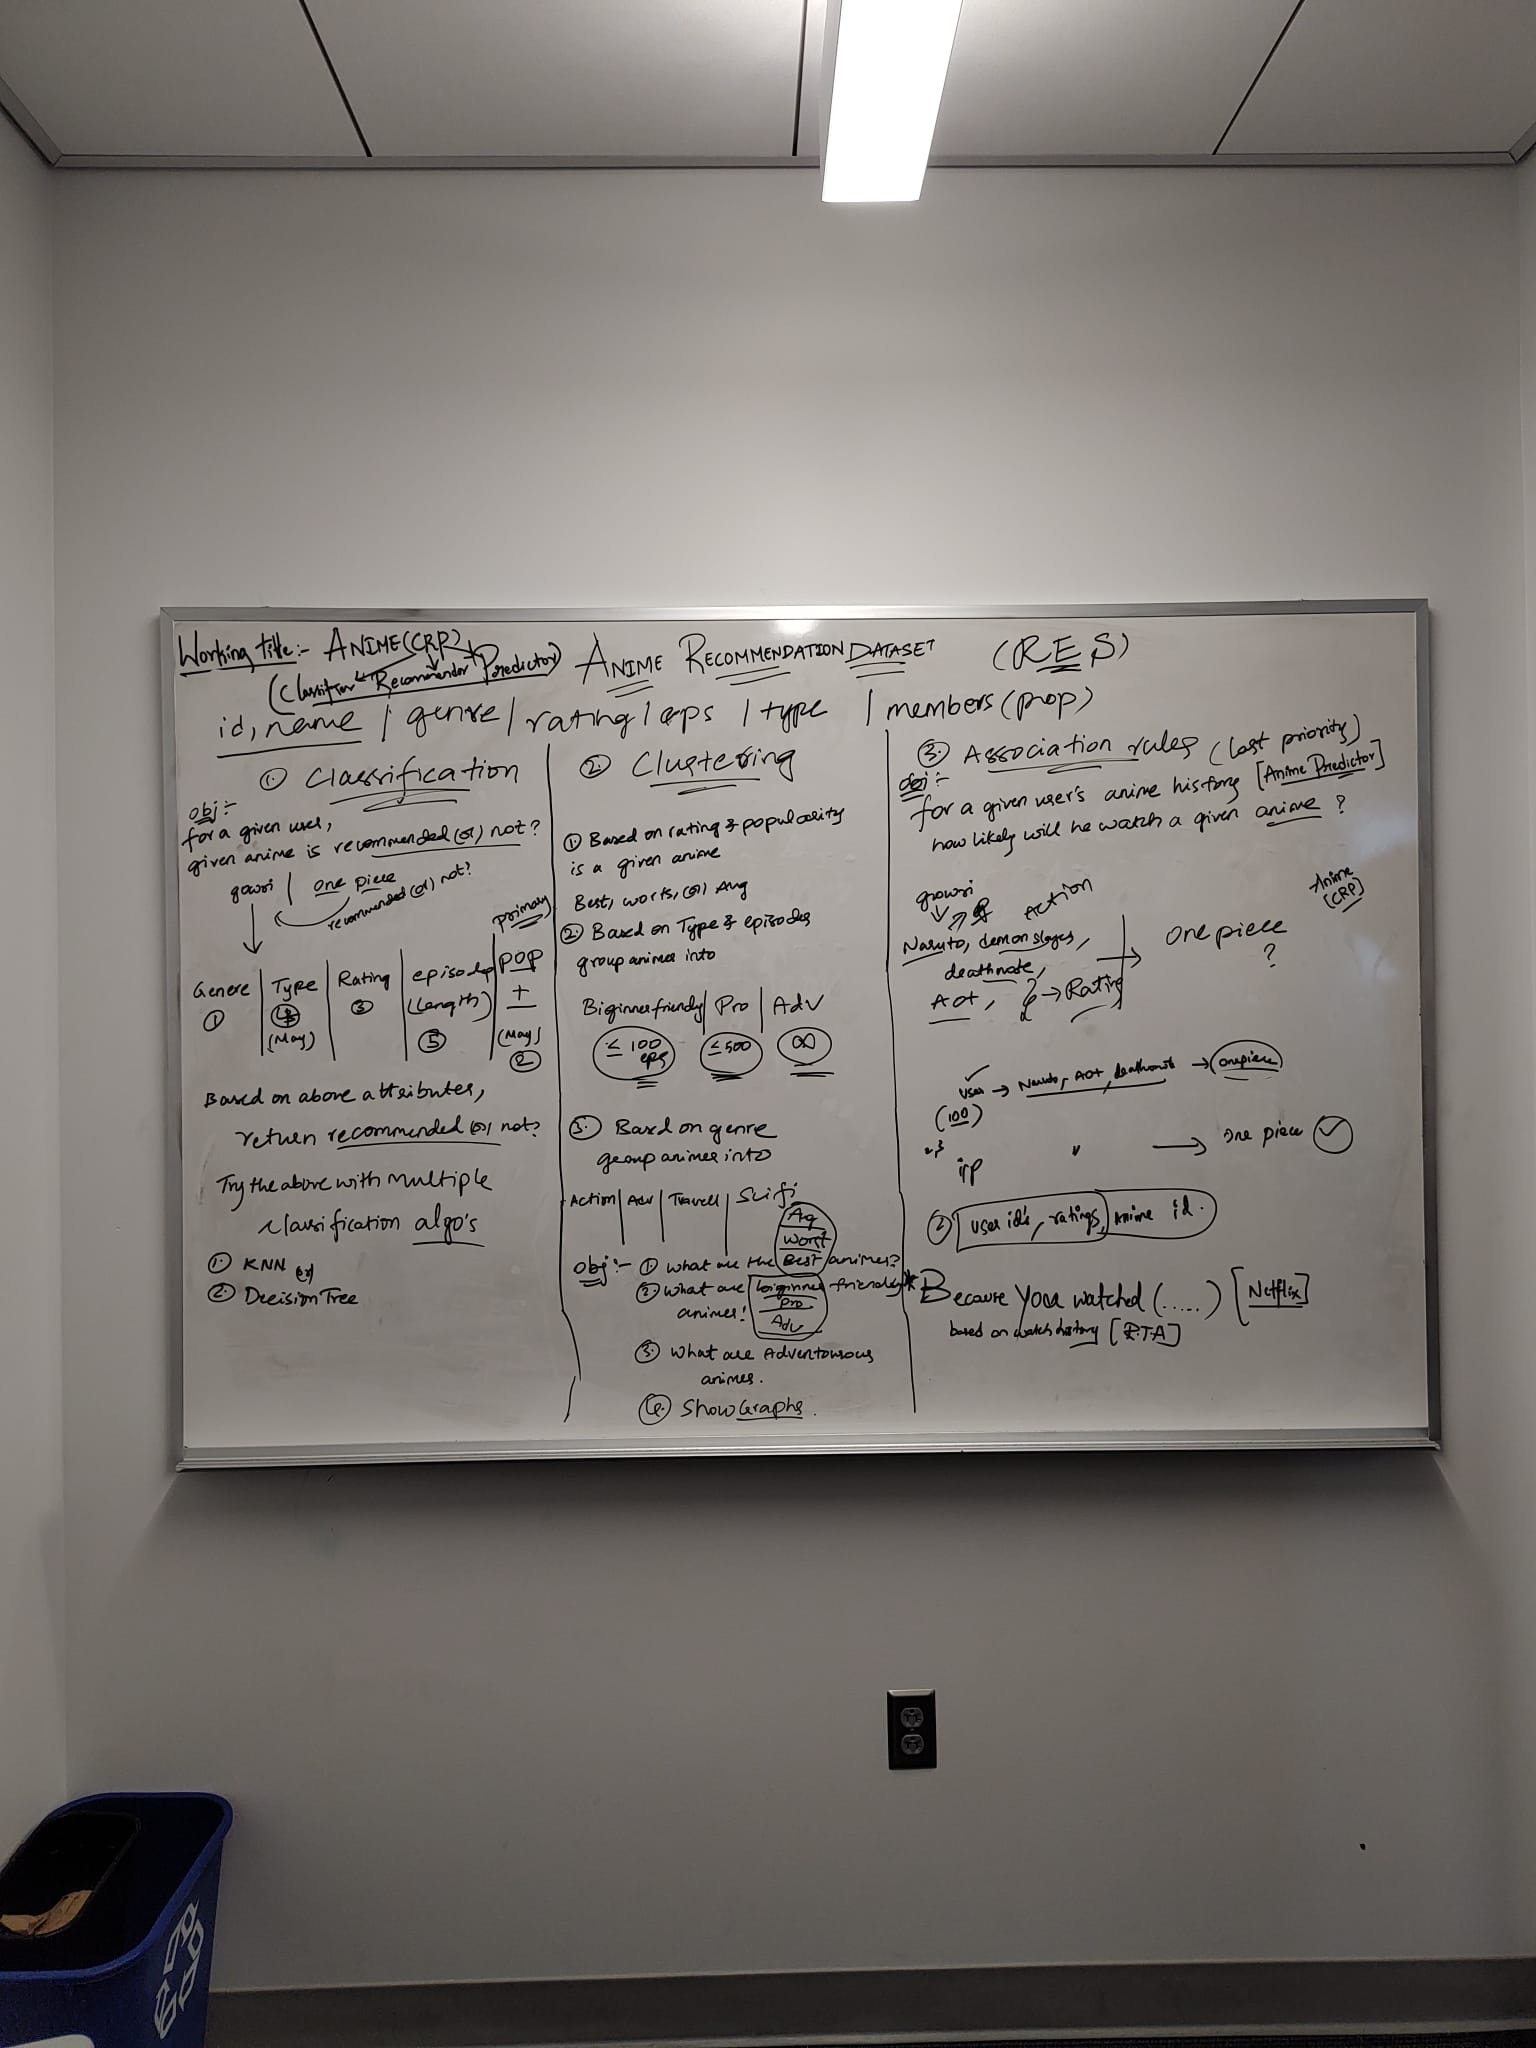 Working title:- ANIME(CRP)
(Classifier Recommender Predictor)
ANIME RECOMMENDATION DATASET (R.E.S)
id, name / genre / rating / eps / type / members (pop)
1. Classification
obj:-
for a given user,
given anime is recommended (or) not?
gowri | one piece
recommended (or) not?
primary
Genere | Type | Rating | episodes | pop
(Length) +
(May) (May)
1 3 5 2
Based on above attributes,
return recommended (or) not?
Try the above with multiple
classification algo's
1. KNN (or)
2. Decision Tree
2. Clustering
1. Based on rating & popularity
is a given anime
Best, worts, (or) Avg
2. Based on Type & episodes
group animes into
Biginner friendly | Pro | Adv
≤ 100 eps ≤ 500 ∞
3. Based on genre
group animes into
Action | Adv | Travell | Scifi
Obj:- 1. What are the Best animes?
Worst
2. What are biginner friendly
animes!
Pro
Adv
3. What are Adventourous
animes.
4. Show Graphs.
3. Association rules (last priority)
obj:-
for a given user's anime history [Anime Predictor]
how likely will he watch a given anime ?
Action
Naruto, demon slayer,
deathnote,
Aot, → Rating
→ one piece
?
Anime
(CRP)
user → Naruto, AOT, deathnote → onepiece
(100)
" → one piece ✓
user id's, ratings, Anime id.
* Because you watched (.....) [Netflix]
based on watch history